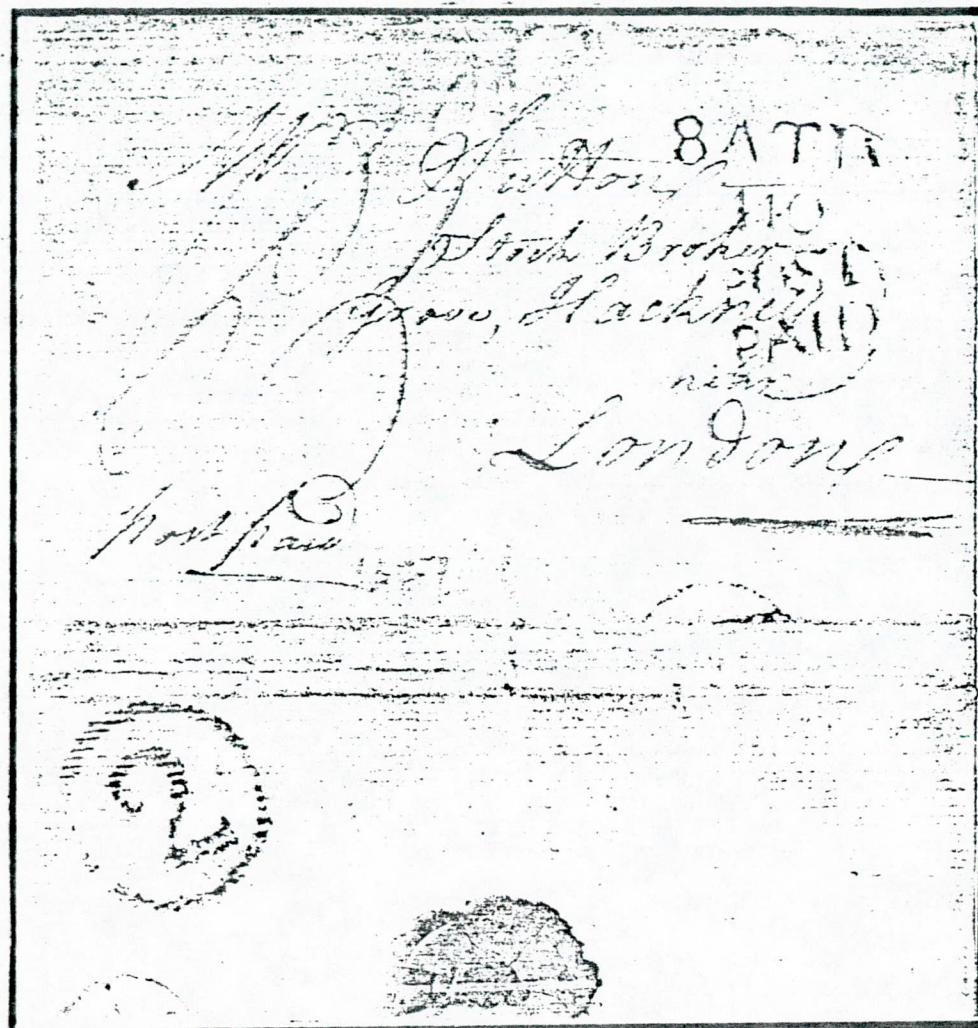 Mr Sutton
BATH
110
Stock Broker
POST
Grove, Hackney
PAID
near
London
post paid
2